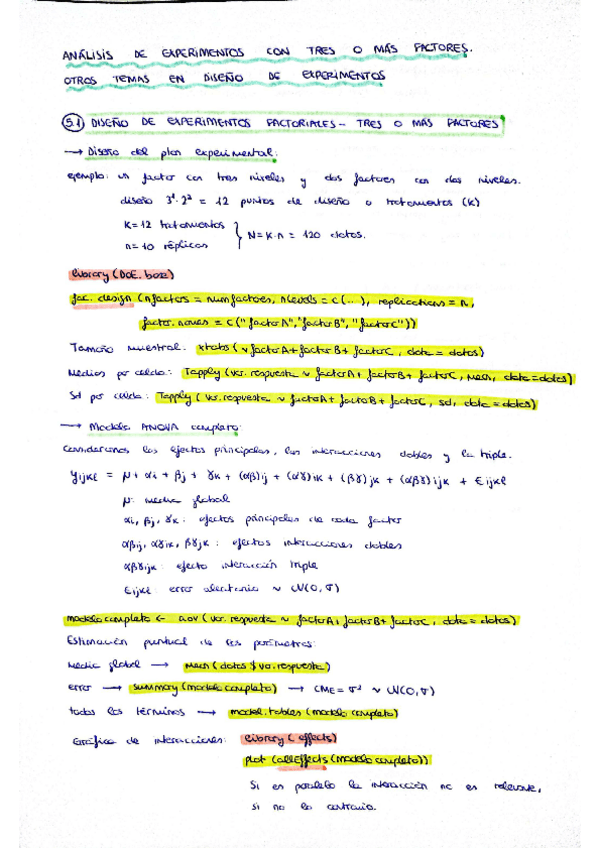 ANÁLISIS DE EXPERIMENTOS CON TRES O MÁS FACTORES.
OTROS TEMAS EN DISEÑO DE EXPERIMENTOS
5.1 DISEÑO DE EXPERIMENTOS FACTORIALES - TRES O MÁS FACTORES
→ Diseño del plan experimental:
ejemplo: un factor con tres niveles y dos factores con dos niveles.
diseño 3¹·2² = 12 puntos de diseño o tratamientos (K)
K=12 tratamientos
n=10 réplicas } N=K·n = 120 datos.
library (DoE.base)
fac.design (nfactors = numfactores, nlevels = c(...), replications = n,
factor.names = c("factorA","factorB","factorC"))
Tamaño muestral: xtabs (~ factorA+factorB+factorC, data = datos)
Medias por celda: Tapply (var.respuesta ~ factorA+factorB+factorC, mean, data=datos)
Sd por celda: Tapply (var.respuesta ~ factorA+factorB+factorC, sd, data=datos)
→ Modelo ANOVA completo:
Consideramos los efectos principales, las interacciones dobles y la triple.
yijkl = μ + αi + βj + γk + (αβ)ij + (αγ)ik + (βγ)jk + (αβγ)ijk + εijkl
μ: media global
αi, βj, γk: efectos principales de cada factor
αβij, αγik, βγjk: efectos interacciones dobles
αβγijk: efecto interacción triple
εijkl: error aleatorio ~ N(0,σ)
modelo.completo <- aov (var.respuesta ~ factorA+factorB+factorC, data = datos)
Estimación puntual de los parámetros:
Media global → mean (datos$var.respuesta)
error → summary (modelo.completo) → CME = σ² ~ N(0,σ)
todos los términos → model.tables (modelo.completo)
Gráfica de interacciones: library (effects)
plot (allEffects (modelo.completo))
Si es paralelo la interacción no es relevante,
si no lo contrario.